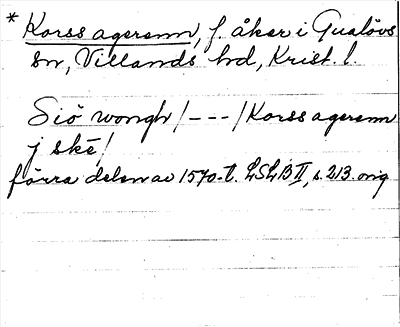 * Korss agerenn, f. åker i Gualövs
sn, Villands hd, Krist. l.
Siö wongh /---/ Korss agerenn
j skē /
förra delen av 1570-t. LSLB II, s. 213. orig